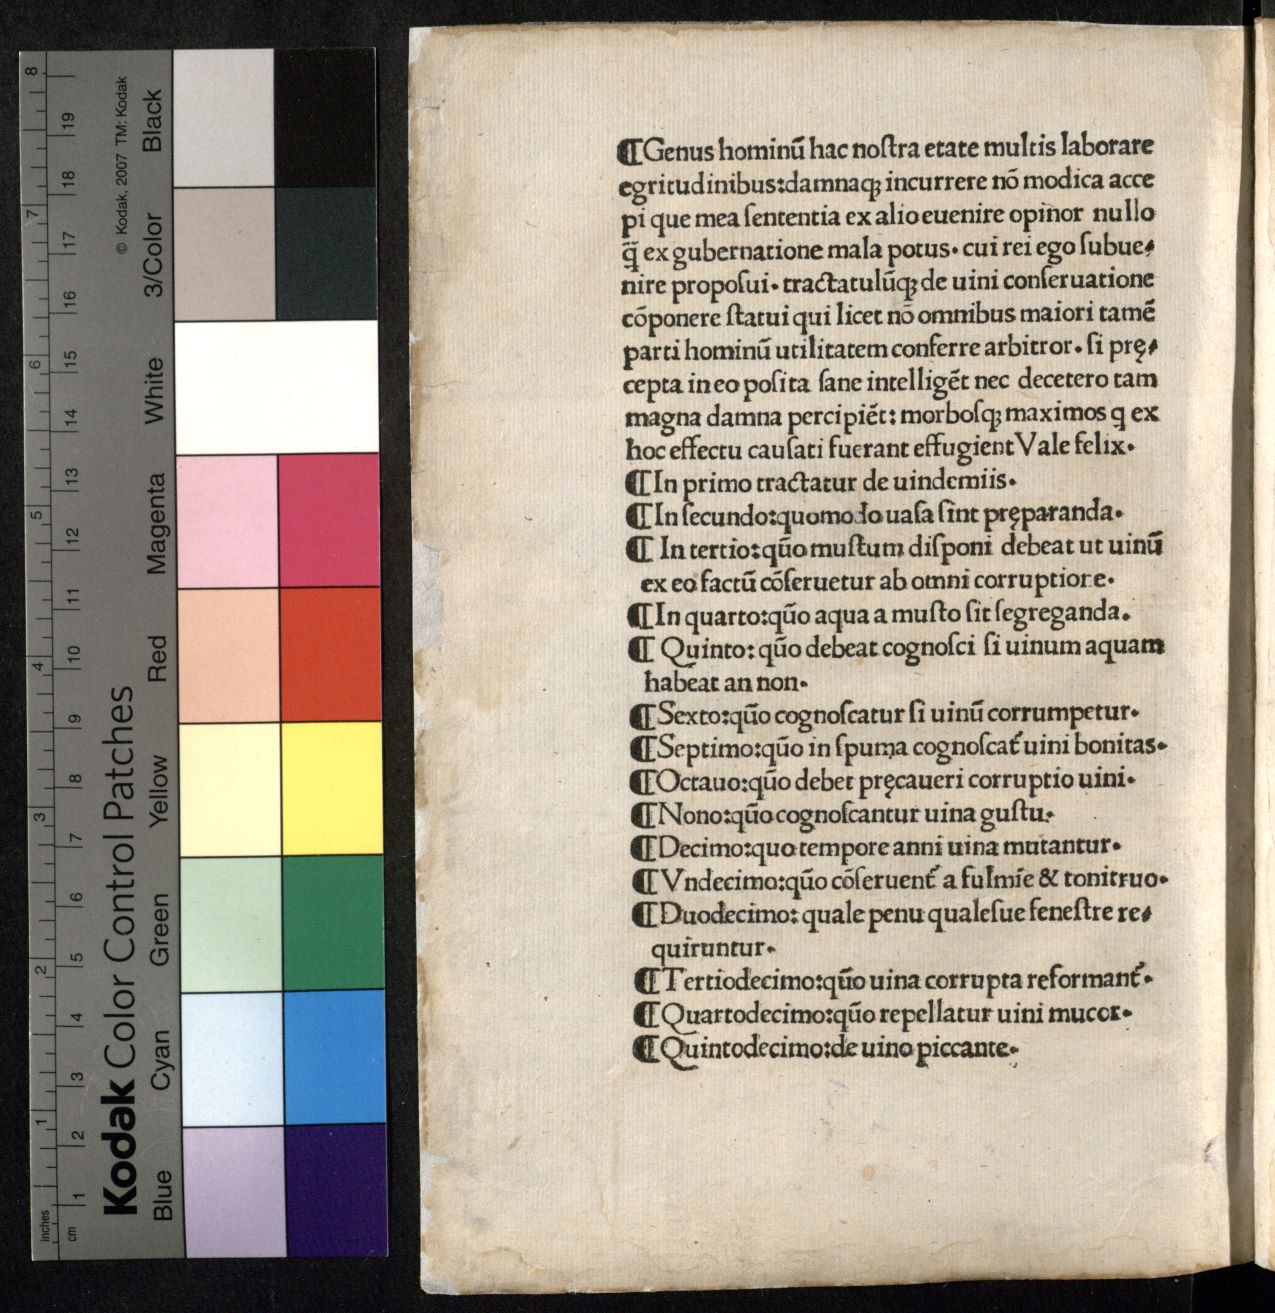 ¶Genus hominū hac noſtra etate multis laborare
egritudinibus:damnaqꝫ incurrere nō modica acce
pi que mea ſententia ex alio euenire opinor nullo
q̄̈ ex gubernatione mala potus. cui rei ego ſubue⸗
nire propoſui. tractatulūqꝫ de uini conſeruatione
cōponere ſtatui qui licet nō omnibus maiori tamē
parti hominū utilitatem conferre arbitror. ſi prę⸗
cepta in eo poſita ſane intelligēt nec decetero tam
magna damna percipiēt: morboſqꝫ maximos q ex
hoc effectu cauſati fuerant effugient Vale felix.
¶In primo tractatur de uindemiis.
¶In ſecundo:quomodo uaſa ſint pręparanda.
¶ In tertio:qūo muſtum diſponi debeat ut uinū
ex eo factū cōſeruetur ab omni corruptione.
¶In quarto:qūo aqua a muſto ſit ſegreganda.
¶ Quinto: qūo debeat cognoſci ſi uinum aquam
habeat an non.
¶Sexto:qūo cognoſcatur ſi uinū corrumpetur.
¶Septimo:qūo in ſpuma cognoſcat᷑ uini bonitas.
¶Octauo:qūo debet pręcaueri corruptio uini.
¶Nono:qūo cognoſcantur uina guſtu.
¶Decimo:quo tempore anni uina mutantur.
¶Vndecimo:qūo cōſeruent᷑ a fulmīe & tonitruo.
¶Duodecimo: quale penu qualeſue feneſtre re⸗
quiruntur.
¶Tertiodecimo:qūo uina corrupta reformant᷑.
¶Quartodecimo:qūo repellatur uini mucor.
¶Quintodecimo:de uino piccante.
inches
cm
1 2 3 4 5 6 7 8
1 2 3 4 5 6 7 8 9 10 11 12 13 14 15 16 17 18 19
Kodak Color Control Patches
© Kodak, 2007 TM: Kodak
Blue Cyan Green Yellow Red Magenta White 3/Color Black